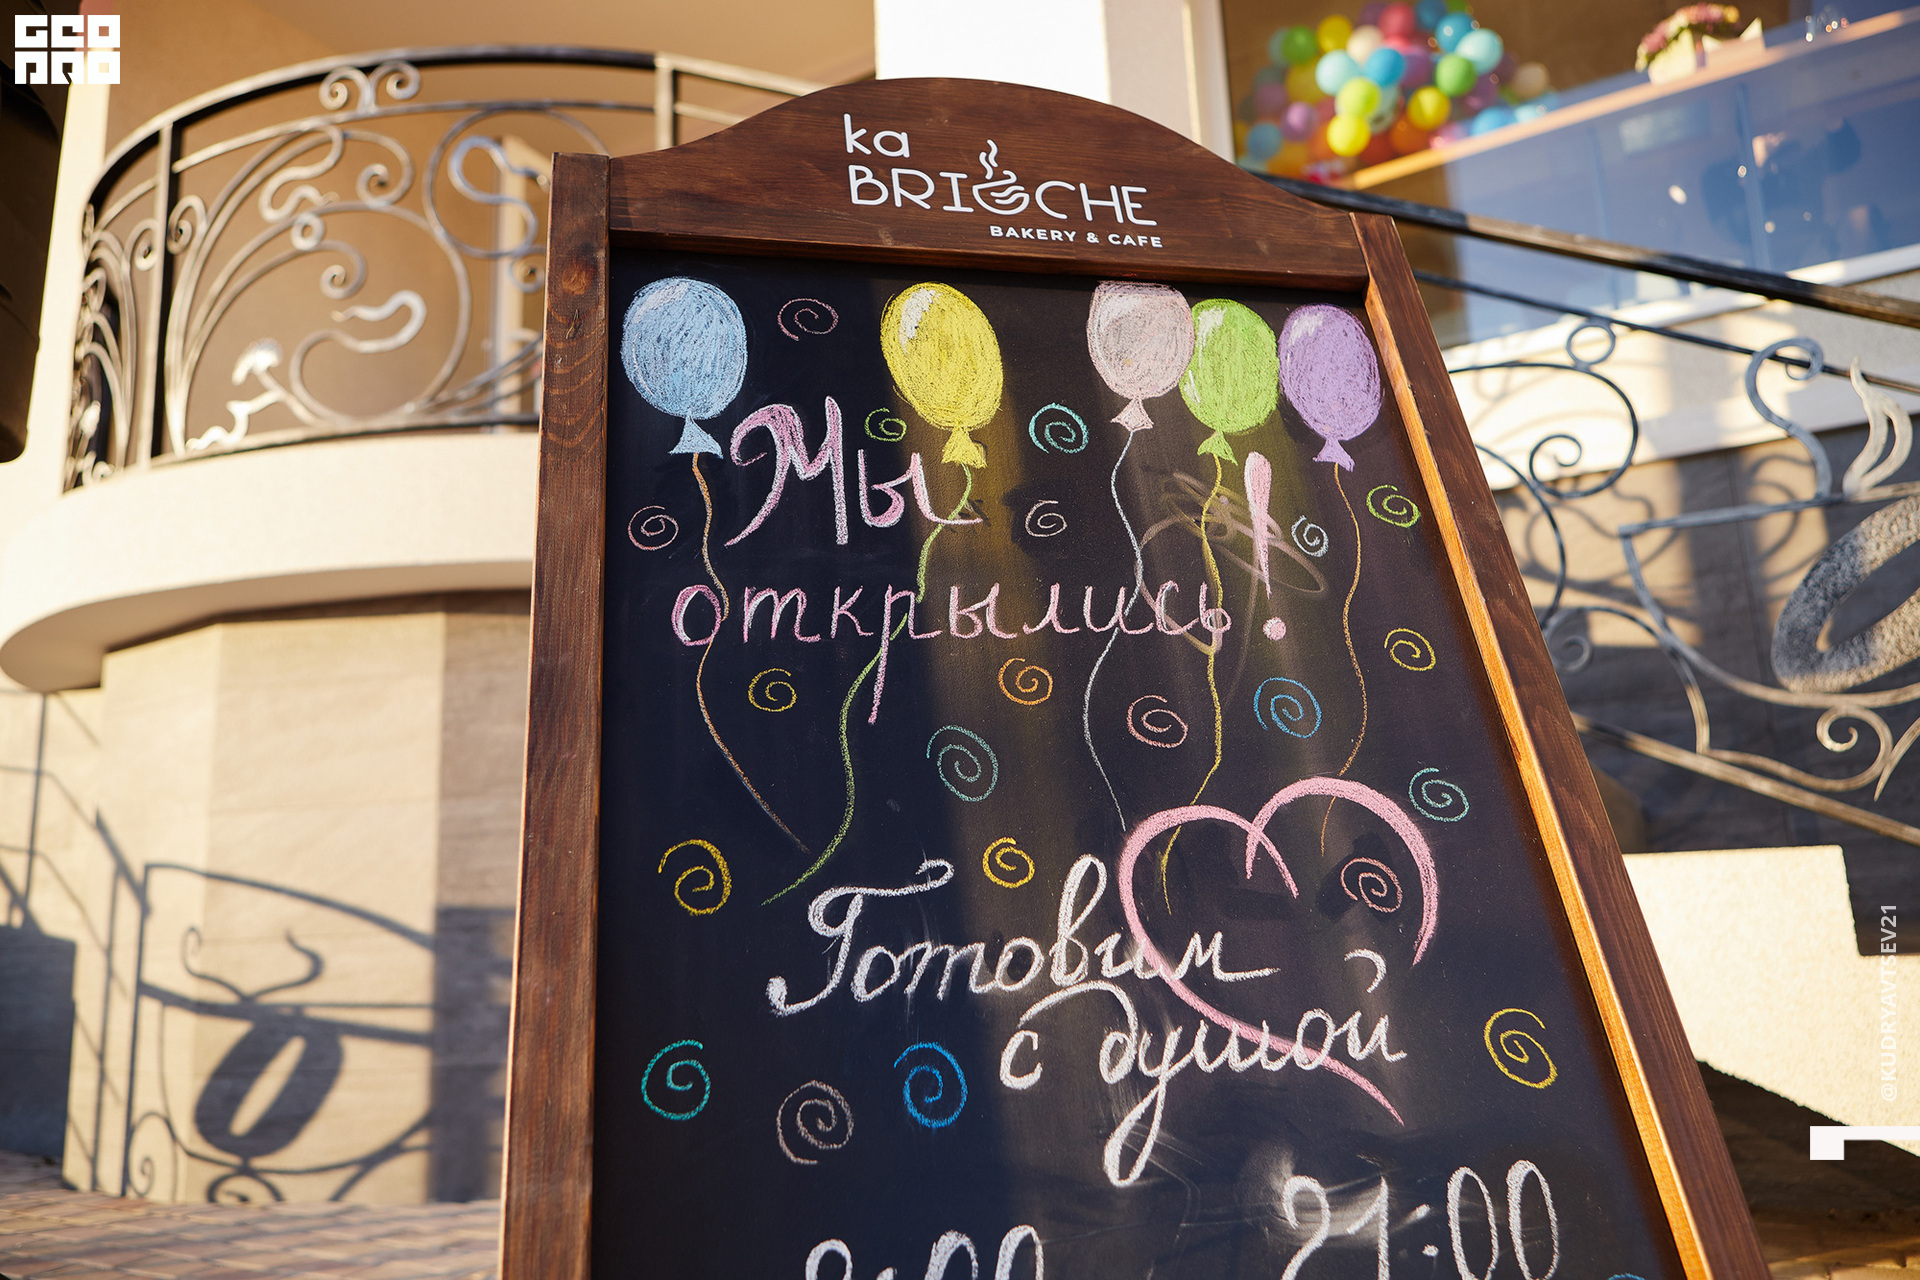 GEO
PRO
ka
BRIOCHE
BAKERY & CAFE
Мы
открылись!
Готовим
с душой
21:00
@KUDRYAVTSEV21